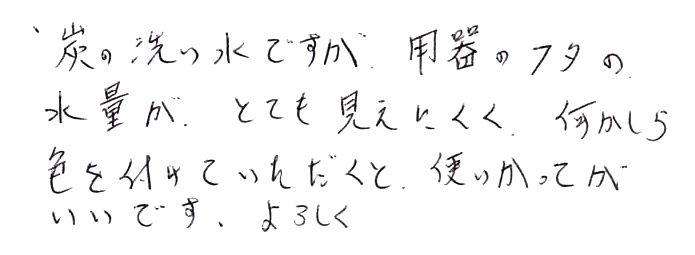 、炭の洗い水ですが、用器のフタの
水量が、とても見えにくく、何かしら
色を付けていただくと、使いかってが
いいです、よろしく